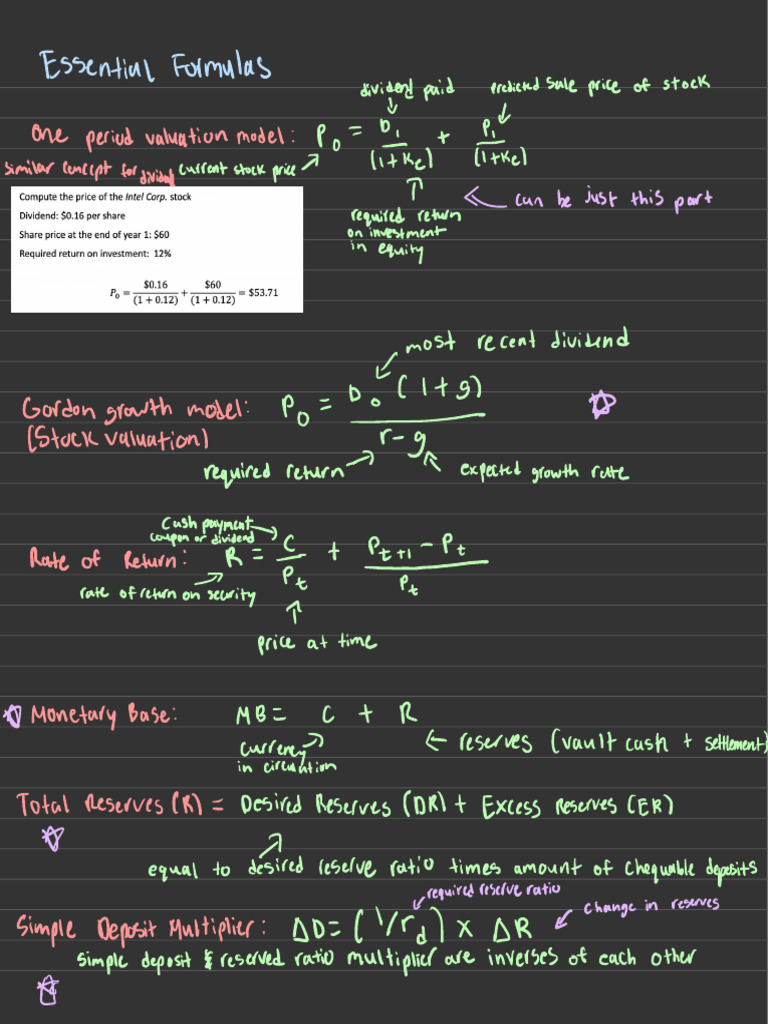 Essential Formulas
dividend paid
predicted sale price of stock
One period valuation model: P₀ = D₁/(1+Ke) + P₁/(1+Ke)
similar concept for dividend
current stock price
can be just this part
required return
on investment
in equity
Compute the price of the Intel Corp. stock
Dividend: $0.16 per share
Share price at the end of year 1: $60
Required return on investment: 12%
P₀ = $0.16/(1 + 0.12) + $60/(1 + 0.12) = $53.71
most recent dividend
Gordon growth model: P₀ = D₀(1+g)/(r-g)
(Stock valuation)
required return
expected growth rate
Cash payment
coupon or dividend
Rate of Return: R = C/Pt + (Pt+1 - Pt)/Pt
rate of return on security
price at time
Monetary Base: MB = C + R
currency
in circulation
← reserves (vault cash + settlement)
Total Reserves (R) = Desired Reserves (DR) + Excess Reserves (ER)
equal to desired reserve ratio times amount of chequable deposits
required reserve ratio
Simple Deposit Multiplier: ΔD = (1/rd) x ΔR
change in reserves
simple deposit & reserved ratio multiplier are inverses of each other